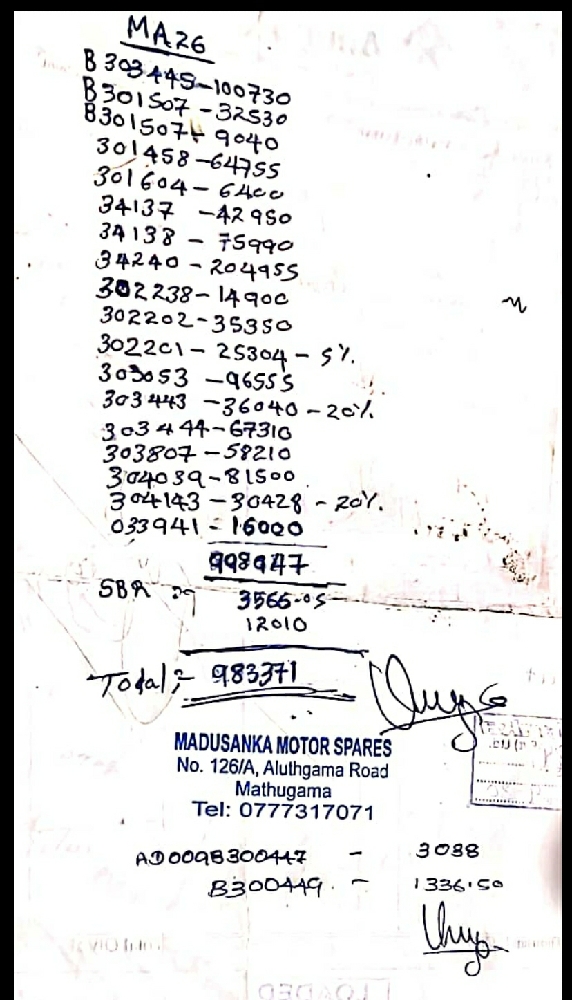 MA26
B303445-100730
B301507-32530
B301507-9040
301458-64755
301604-6400
34137-42950
34138-75990
34240-204955
302238-14900
302202-35350
302201-25304-5%.
303053-96555
303443-36040-20%.
303444-67310
303807-58210
304039-81500
304143-30428-20%.
033941-16000
998947
SBR :-
3566-05
12010
Total :- 983371
MADUSANKA MOTOR SPARES
No. 126/A, Aluthgama Road
Mathugama
Tel: 0777317071
AD009B300447 - 3088
B300449. - 1336.50